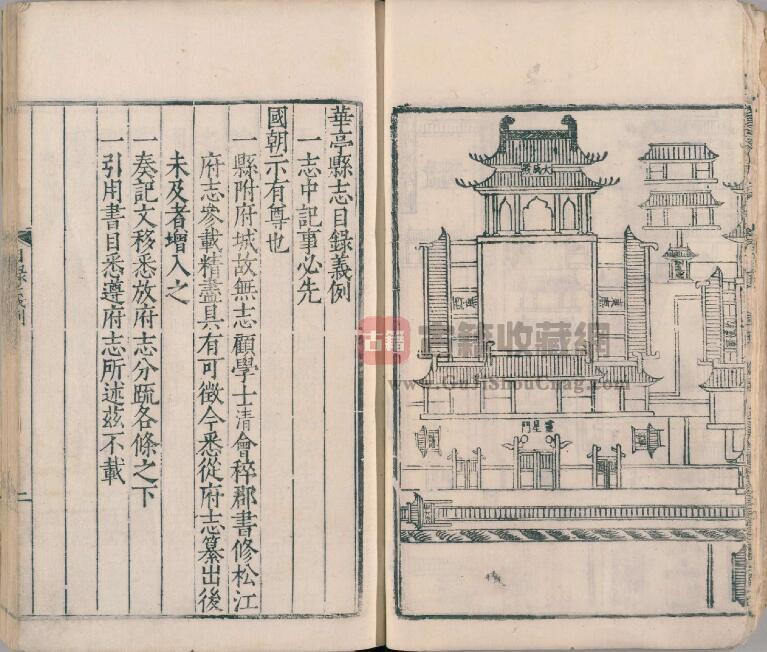 華亭縣志目錄義例
一志中記事必先
國朝示有尊也
一縣附府城故無志顧學士清會稡郡書修松江
府志參載精盡具有可徵今悉從府志纂出後
未及者增入之
一奏記文移悉放府志分疏各條之下
一引用書目悉遵府志所述茲不載
二
門星靈
古籍
書籍收藏網